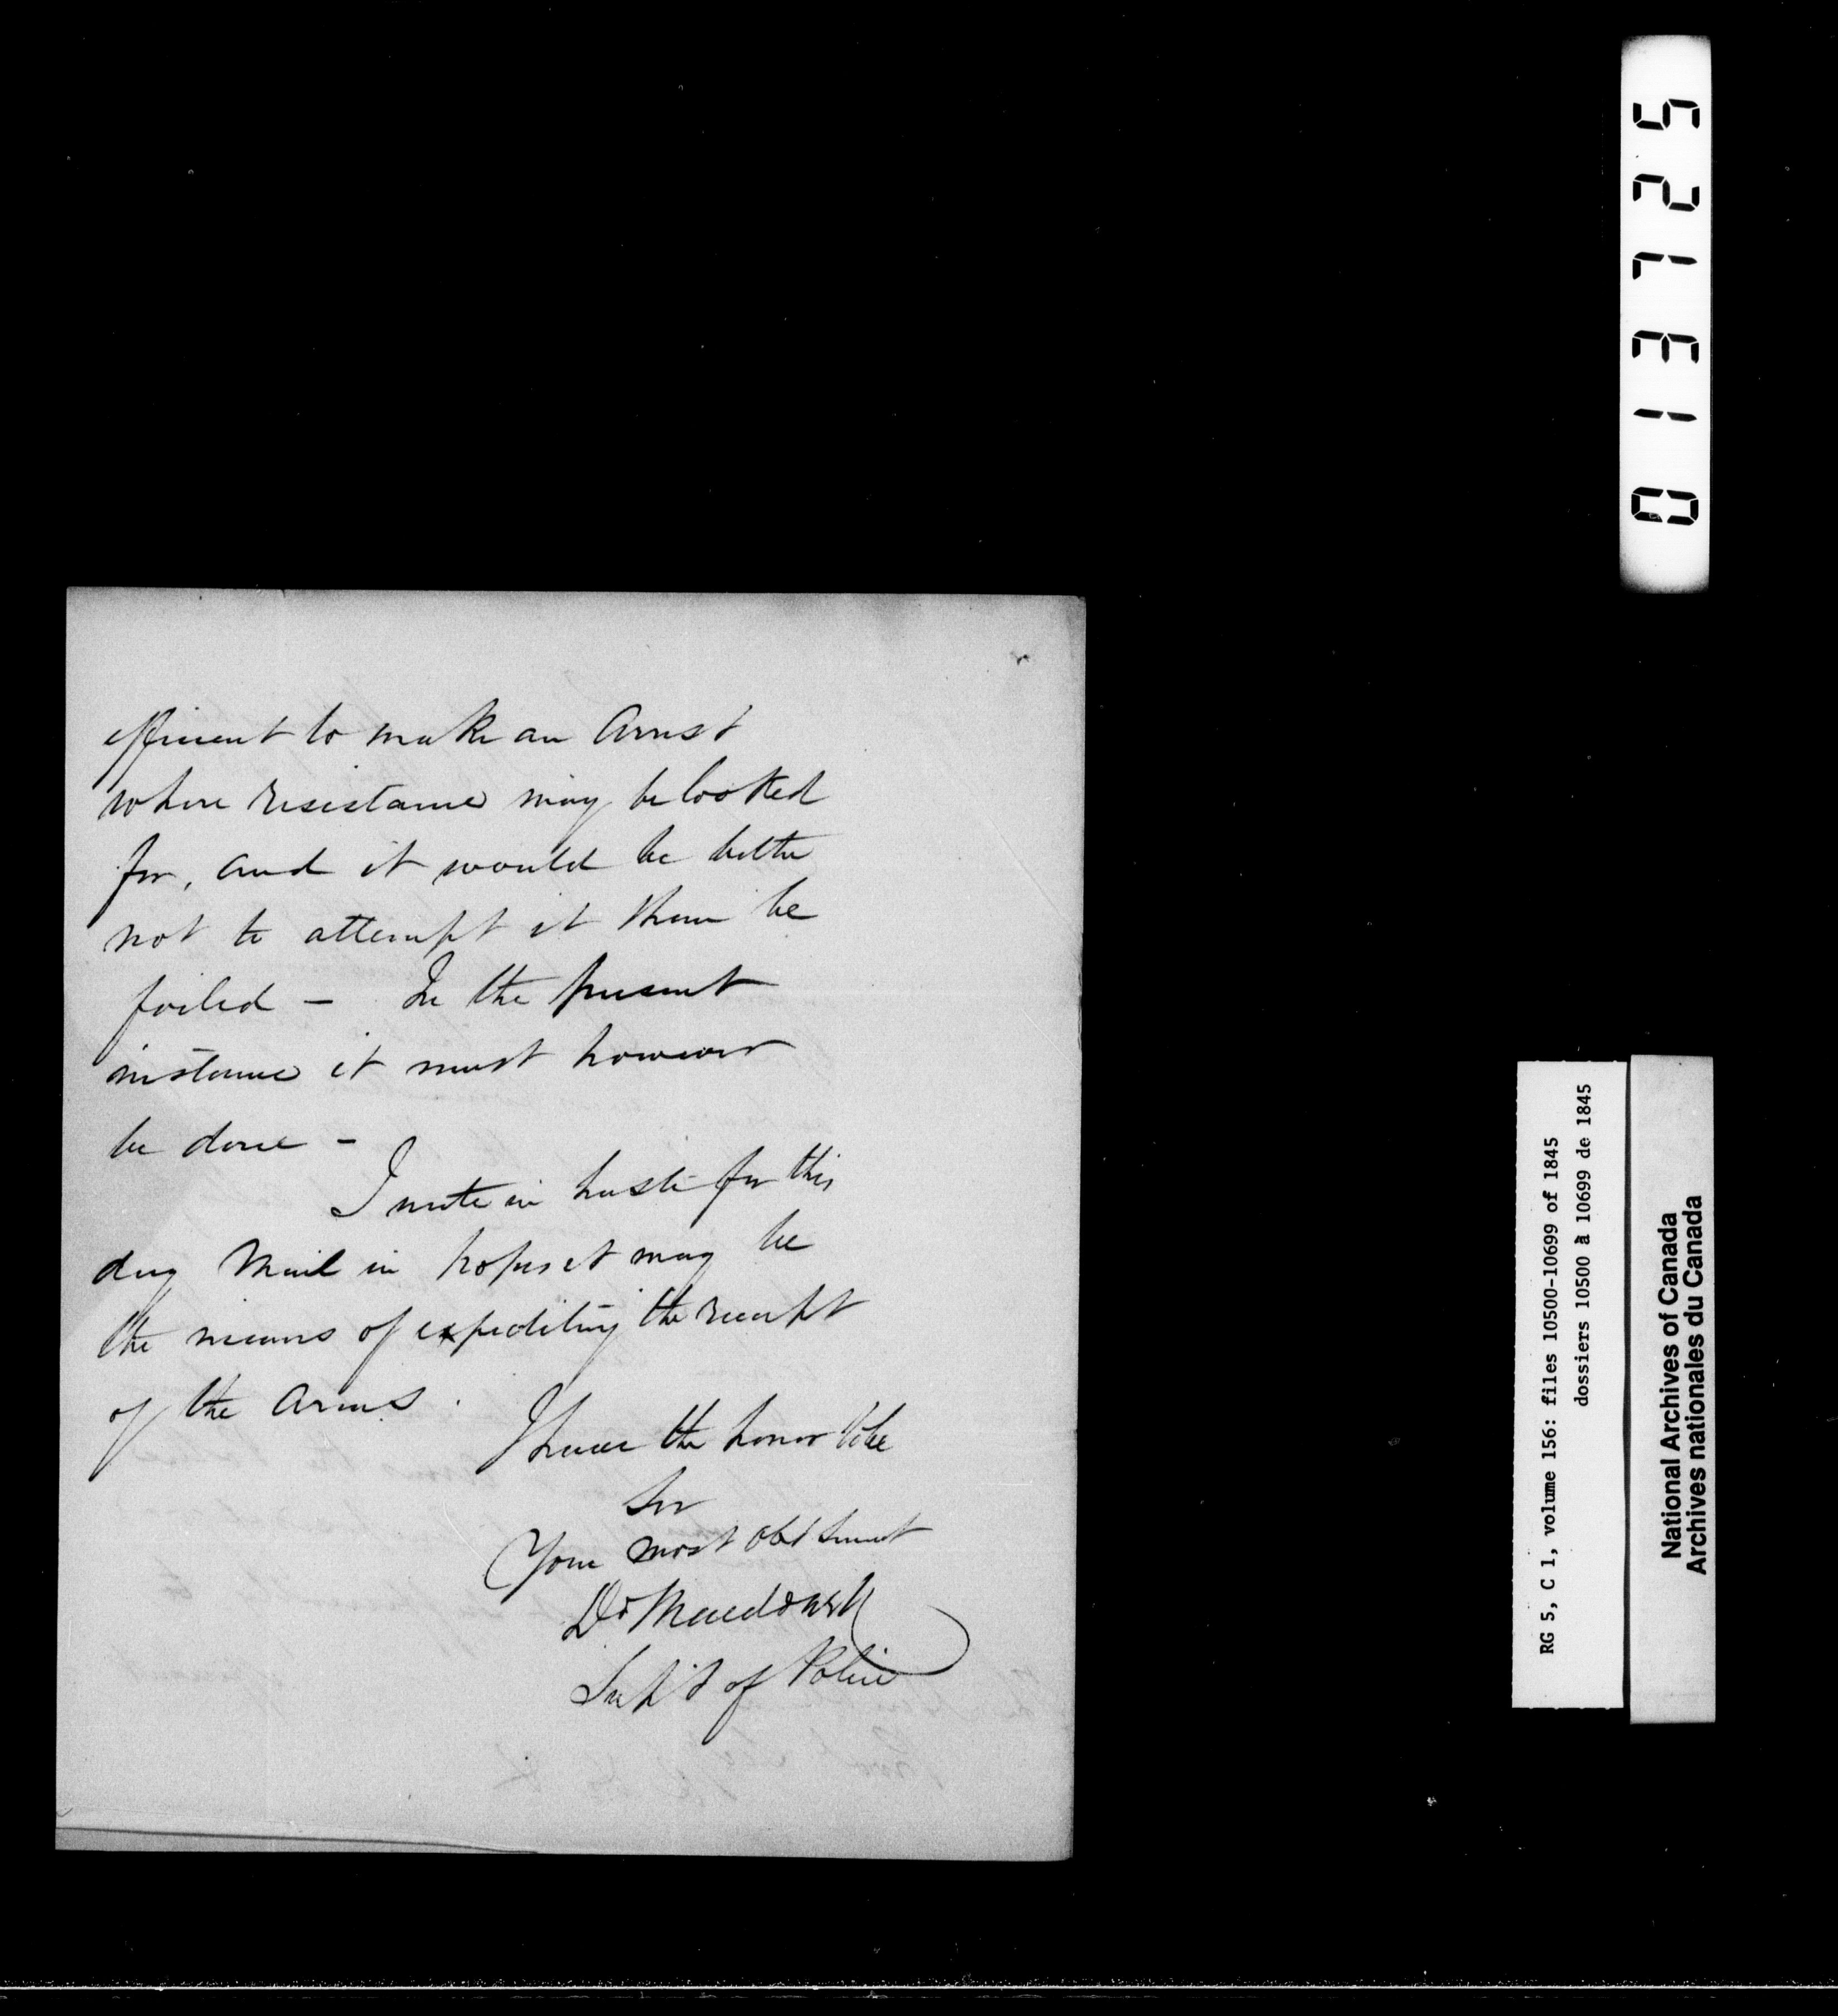 efficient to make an Arrest
where resistance may be looked
for, and it would be better
not to attempt it than be
foiled — In the present
instance it must however
be done —
I write in haste for this
day Mail in hopes it may be
the means of expediting the receipt
of the Arms.
I have the honor to be
Sir
Your most obdt Servant
Supt of Police
013725
RG 5, C 1, volume 156: files 10500-10699 of 1845
dossiers 10500 à 10699 de 1845
National Archives of Canada
Archives nationales du Canada